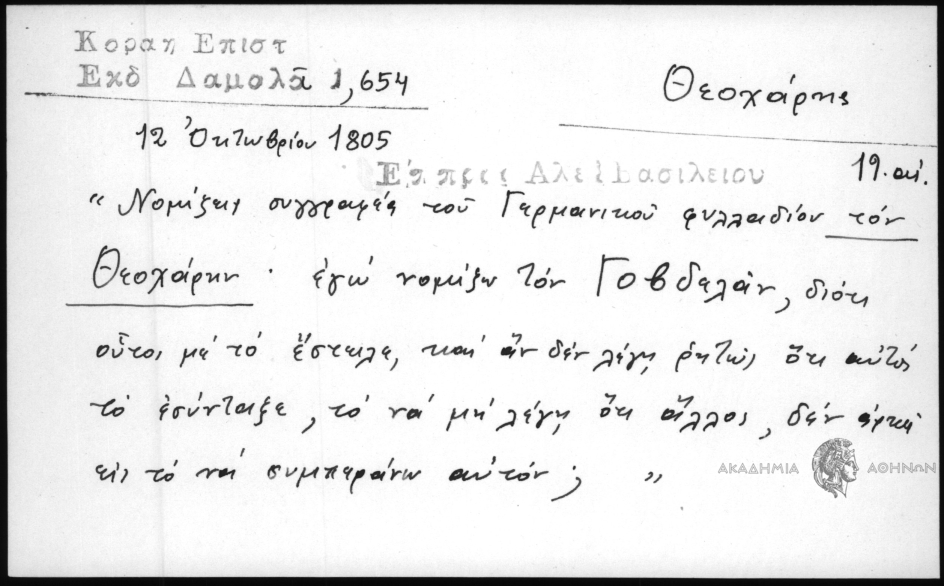 Κοραη Επιστ
Εκδ Δαμαλᾶ 1,654
Θεοχάρης
12 Ὀκτωβρίου 1805
19. αἰ.
Εἰς πρεξ Αλεξ Βασιλειου
“ Νομίζεις συγγραφέα τοῦ Γερμανικοῦ φυλλαδίου τόν
Θεοχάρην · ἐγώ νομίζω τόν Γοβδελᾶν, διότι
οὗτος μέ τό ἔστειλε, καί ἄν δέν λέγῃ ῥητῶς ὅτι αὐτός
τό ἐσύνταξε, τό νά μή λέγῃ ὅτι ἄλλος, δέν ἀρκεῖ
εἰς τό νά συμπεράνω αὐτόν ; ”
ΑΚΑΔΗΜΙΑ ΑΘΗΝΩΝ